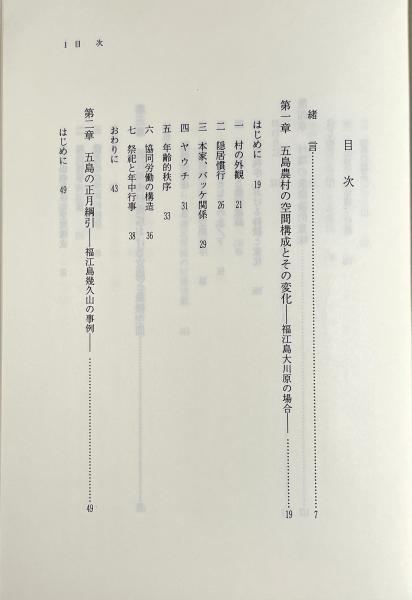 1 目 次
目 次
緒 言……………………………7
第一章 五島農村の空間構成とその変化――福江島大川原の場合――……………19
はじめに 19
一 村の外観 21
二 隠居慣行 26
三 本家、バッケ関係 29
四 ヤウチ 31
五 年齢的秩序 33
六 協同労働の構造 36
七 祭祀と年中行事 38
おわりに 43
第二章 五島の正月綱引――福江島幾久山の事例――……………………49
はじめに 49